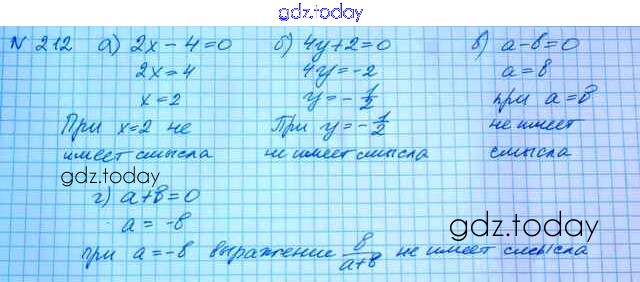 gdz.today
N 212 а) 2x - 4 = 0 б) 4y + 2 = 0 в) a - b = 0
2x = 4 4y = -2 a = b
x = 2 y = -1/2 при a = b
При x = 2 не При y = -1/2 не имеет
имеет смысла не имеет смысла смысла
gdz.today
г) a + b = 0
a = -b
gdz.today
при a = -b выражение 8/(a+b) не имеет смысла